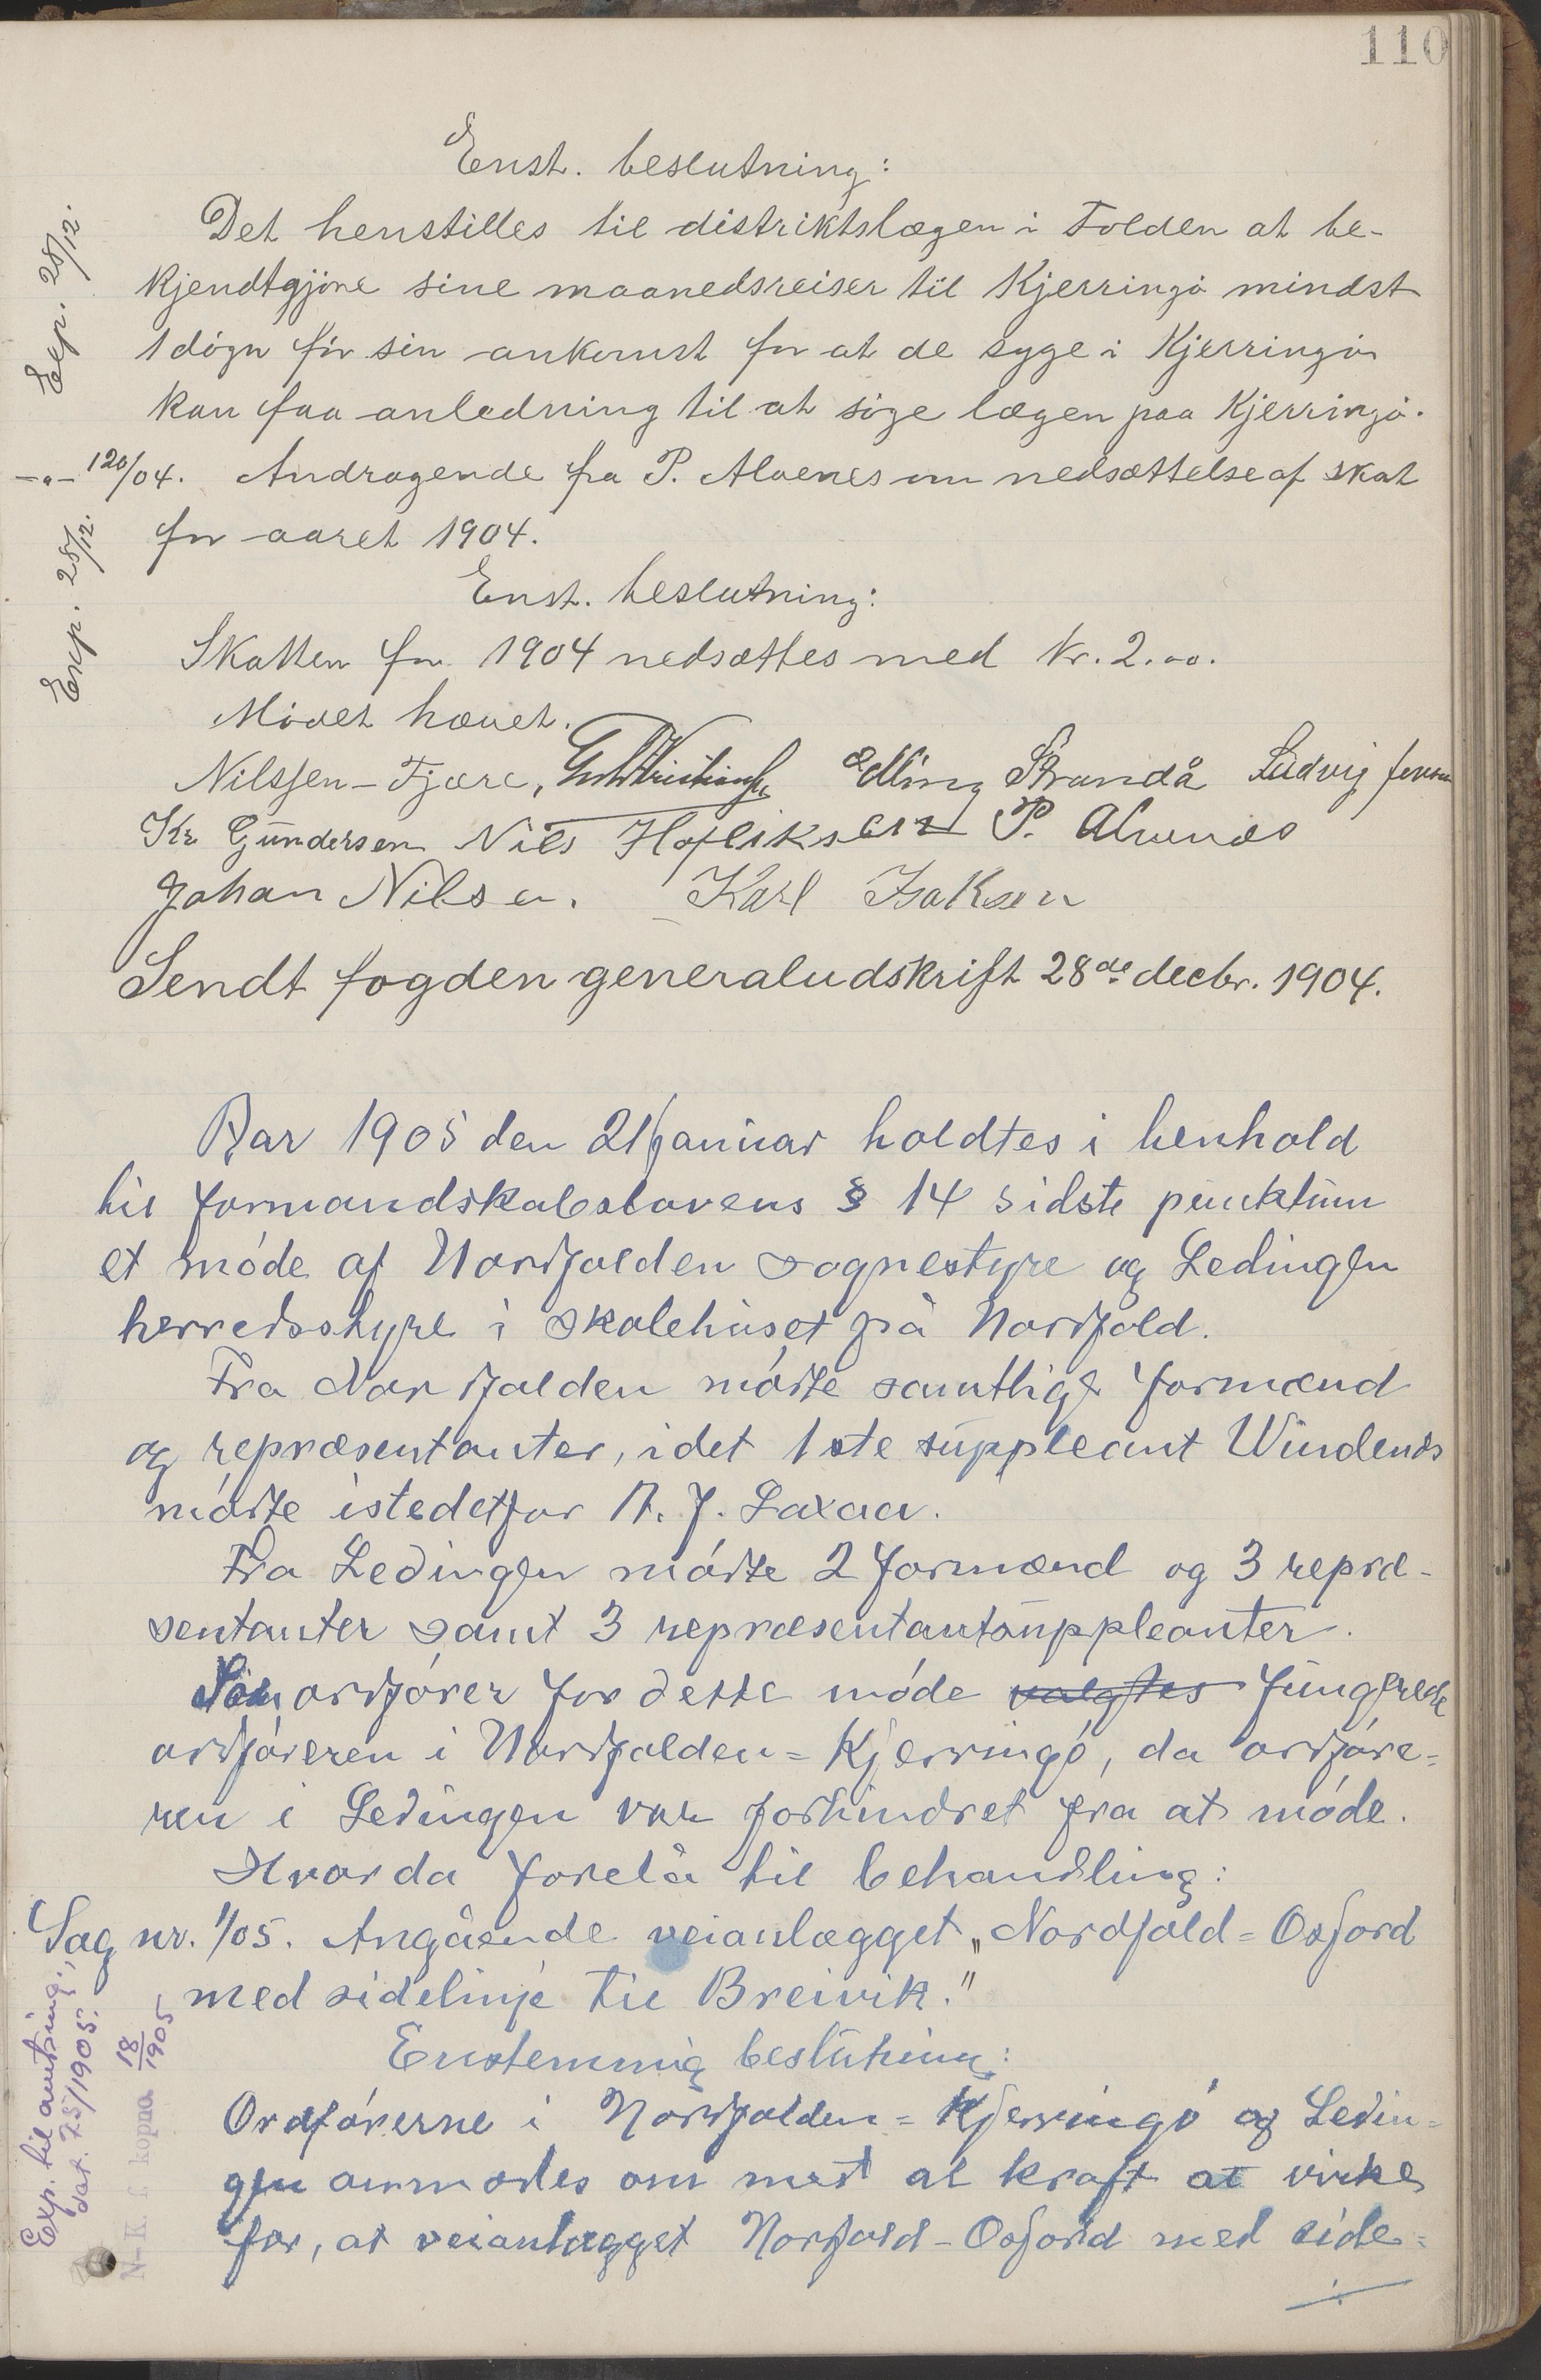 110
Enst. beslutning:
Det henstilles til distriktslægen i Folden at be-
kjendtgjøre sine maanedsreiser til Kjerringø mindst
1 døgn før sin ankomst for at de syge i Kjerringø
kan faa anledning til at søge lægen paa Kjerringø.
Exp. 28/12.
-"- 120/04. Andragende fra P. Alvenes om nedsættelse af skat
for aaret 1904.
Enst. beslutning:
Skatten for 1904 nedsættes med kr. 2.00.
Exp. 28/12.
Mødet hævet.
Nilssen-Fjære, Edling Strandå Ludvig Jensen
Kr Gundersen Nils P. Alvenes
Johan Nilsen. Karl Isaksen
Sendt fogden generaludskrift 28de decbr. 1904.
Aar 1905 den 21 januar holdtes i henhold
til formandskabslovens § 14 sidste punktum
et møde af Nordfolden sognestyre og Ledingen
herredsstyre i skolehuset på Nordfold.
Fra Nordfolden mødte samtlige formænd
og repræsentanter, idet 1ste suppleant Windenes
mødte istedetfor A. J. Laxaa.
Fra Ledingen mødte 2 formænd og 3 repræ-
sentanter samt 3 repræsentantsuppleanter.
Som ordfører for dette møde valgtes fungerede
ordføreren i Nordfolden=Kjerringø, da ordføre=
ren i Ledingen var forhindret fra at møde.
Hvorda forelå til behandling:
Sag nr. 1/05. Angående veianlægget „Nordfold=Osford
med sidelinje til Breivik."
Enstemmig beslutning:
Ordførerne i Nordfolden=Kjerringø og Ledin=
gen anmodes om med al kraft at virke
for, at veianlægget Norfold-Osford med side=
Exp. til amtsing.,
dat. 25/1905.
N-K. f. kopna 18/1905